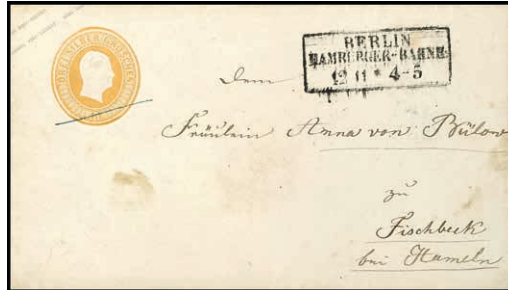 BERLIN
HAMBURGER-BAHNH.
12 11 * 4-5
Dem
Fräulein Anna von Bülow
zu
Fischbeck
bei Hameln